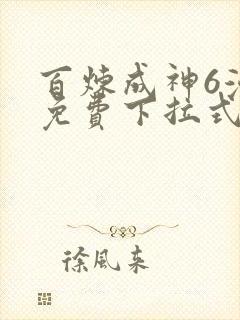 百炼成神6
免費下拉式
徐風来